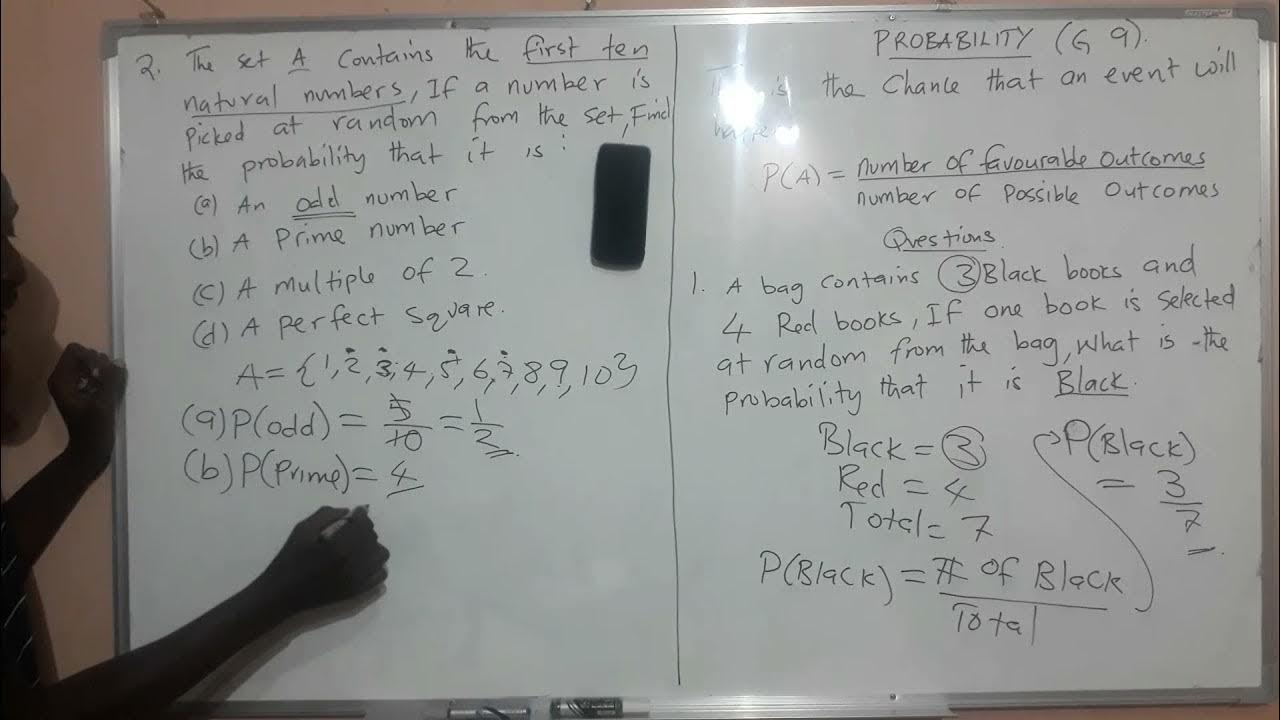 2. The set A contains the first ten
natural numbers, If a number is
picked at random from the set, Find
the probability that it is :
(a) An odd number
(b) A Prime number
(c) A multiple of 2.
(d) A perfect square.
A = {1, 2, 3, 4, 5, 6, 7, 8, 9, 10}
(a) P(odd) = 5/10 = 1/2
(b) P(Prime) = 4
PROBABILITY (G 9).
is the Chance that an event will
P(A) = number of favourable outcomes
number of Possible Outcomes
Questions.
1. A bag contains 3 Black books and
4 Red books, If one book is selected
at random from the bag, what is the
probability that it is Black.
Black = 3
Red = 4
Total = 7
P(Black) = # of Black
Total
P(Black)
= 3/7